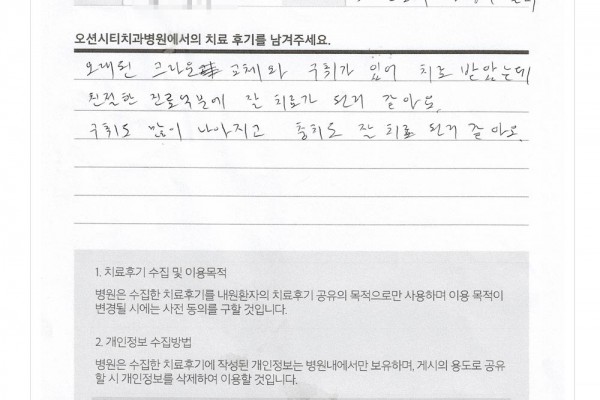 오션시티치과병원에서의 치료 후기를 남겨주세요.
오래된 크라운 교체와 구취가 있어 치료 받았는데
친절한 진료덕분에 잘 치료가 된거 같아요.
구취도 많이 나아지고 충치도 잘 치료 된거 같아요.
1. 치료후기 수집 및 이용목적
병원은 수집한 치료후기를 내원환자의 치료후기 공유의 목적으로만 사용하며 이용 목적이
변경될 시에는 사전 동의를 구할 것입니다.
2. 개인정보 수집방법
병원은 수집한 치료후기에 작성된 개인정보는 병원내에서만 보유하며, 게시의 용도로 공유
할 시 개인정보를 삭제하여 이용할 것입니다.